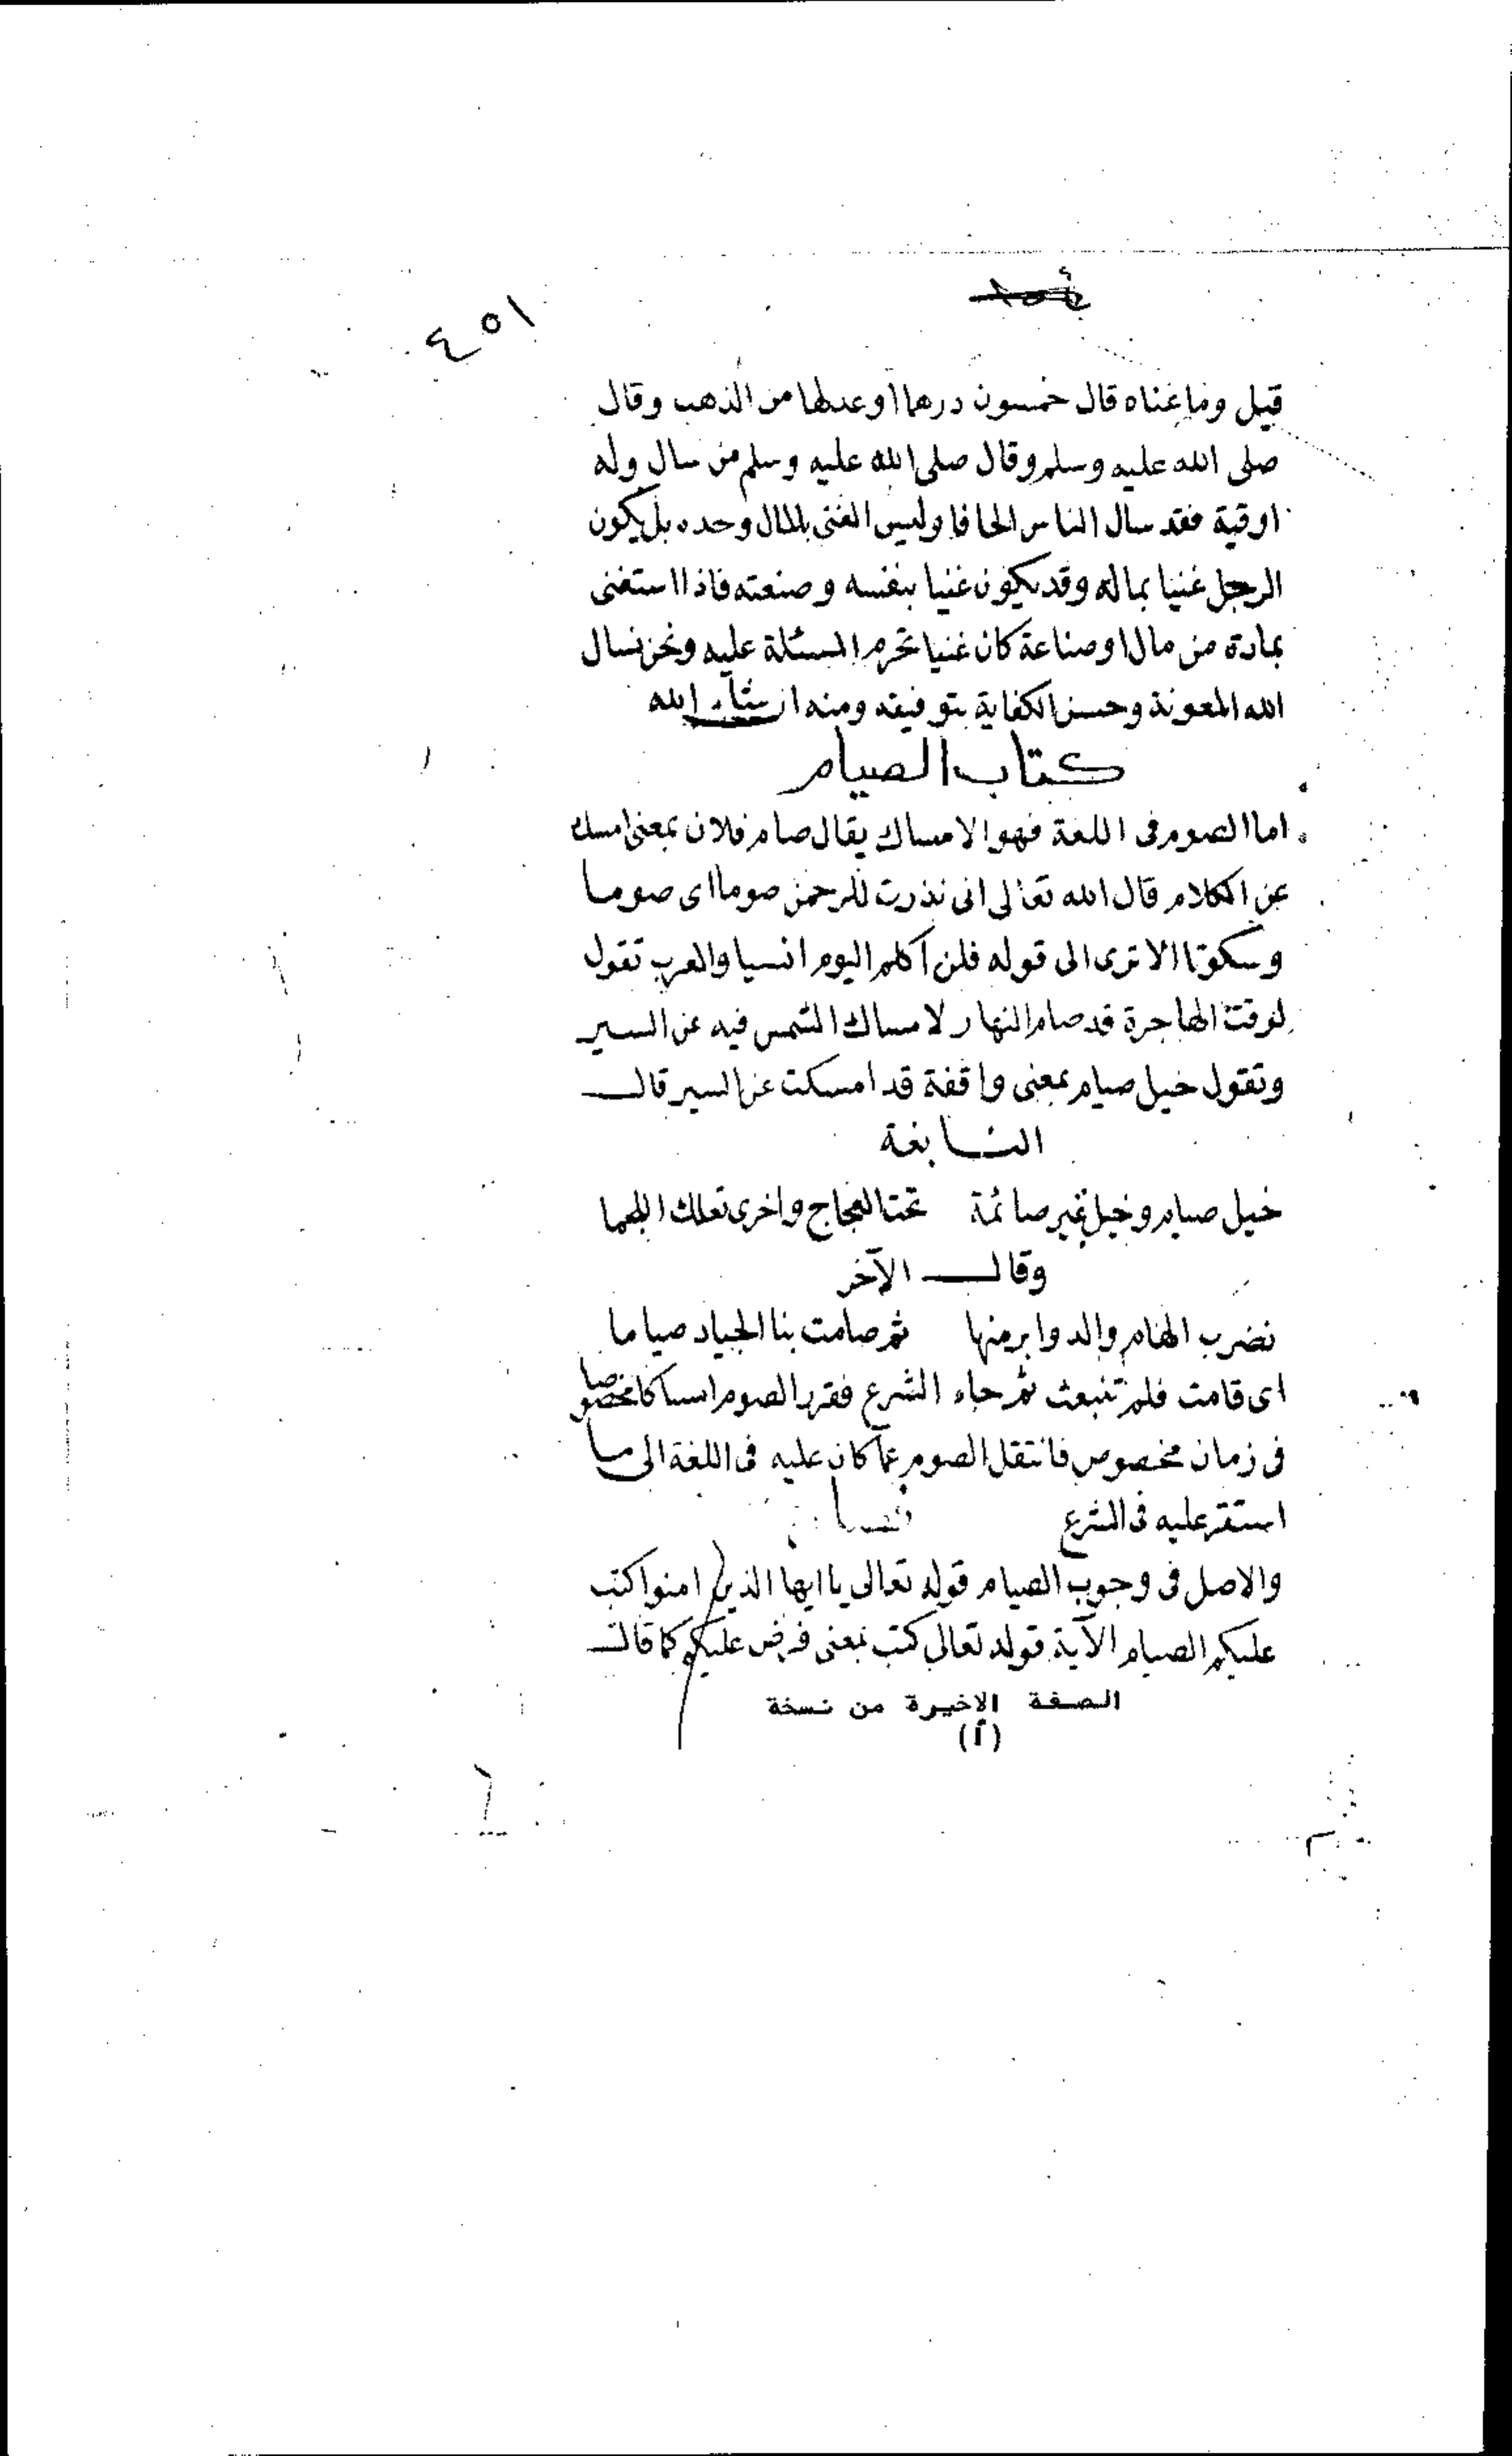 ٤٥١
قيل وما غناه قال خمسون درهما او عدلها من الذهب وقال
صلى الله عليه وسلم وقال صلى الله عليه وسلم من سال وله
اوقية فقد سال الناس الحافا وليس الغنى بالمال وحده بل يكون
الرجل غنيا بماله وقد يكون غنيا بنفسه وصنعته فاذا استغنى
بمادة من مال او صناعة كان غنيا تحرم المسئلة عليه ونحن نسال
الله المعونة وحسن الكفاية بتوفيقه ومنه ان شآء الله
كتاب الصيام
اما الصوم فى اللغة فهو الامساك يقال صام فلان بمعنى امسك
عن الكلام قال الله تعالى انى نذرت للرحمن صوما اى صوما
وسكوتا الا ترى الى قوله فلن اكلم اليوم انسيا والعرب تقول
لوقت الهاجرة قد صام النهار لامساك الشمس فيه عن السير
وتقول خيل صيام بمعنى واقفة قد امسكت عن السير قال
النابغة
خيل صيام وخيل غير صائمة تحت العجاج واخرى تعلك اللجما
وقال الآخر
نضرب الهام والدوابر منها ثم صامت بنا الجياد صياما
اى قامت فلم تنبعث ثم جاء الشرع فقرر الصوم امساكا مخصوصا
فى زمان مخصوص فانتقل الصوم عما كان عليه فى اللغة الى ما
استقر عليه فى الشرع
والاصل فى وجوب الصيام قوله تعالى يا ايها الذين امنوا كتب
عليكم الصيام الآية قوله تعالى كتب بمعنى فرض عليكم كما قال
الصفة الاخيرة من نسخة
(أ)